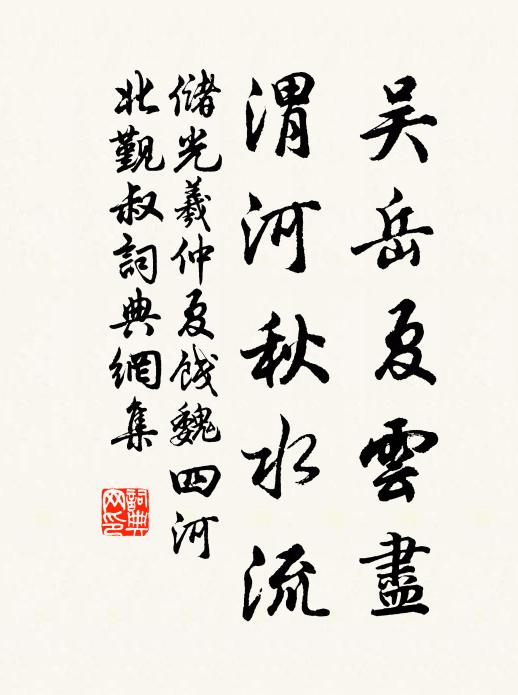 吴岳夏雲盡
渭河秋水流
儲光羲仲夏餞魏四河
北觐叔詞典網集
詞典
网印